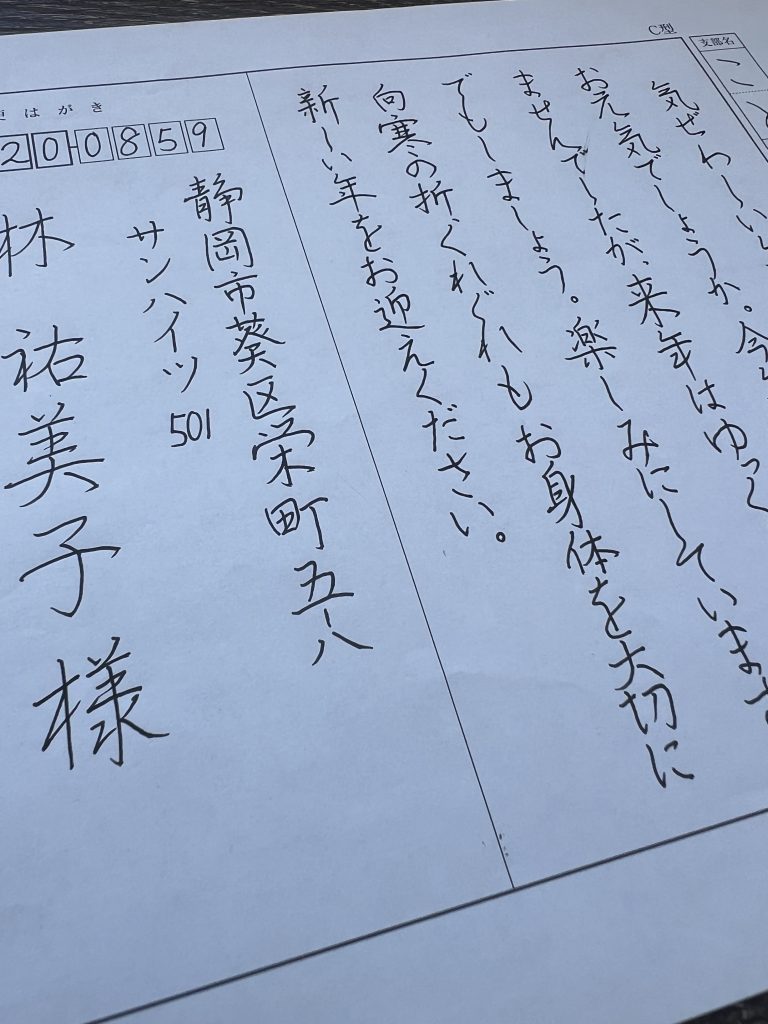 C型
支部名
こ
気ぜわしい
お元気でしょうか。今
ませんでしたが、来年はゆっく
でもしましょう。楽しみにしています
向寒の折くれぐれもお身体を大切に
新しい年をお迎えください。
はがき
20-0859
静岡市葵区栄町五-八
サンハイツ 501
林 祐美子 様